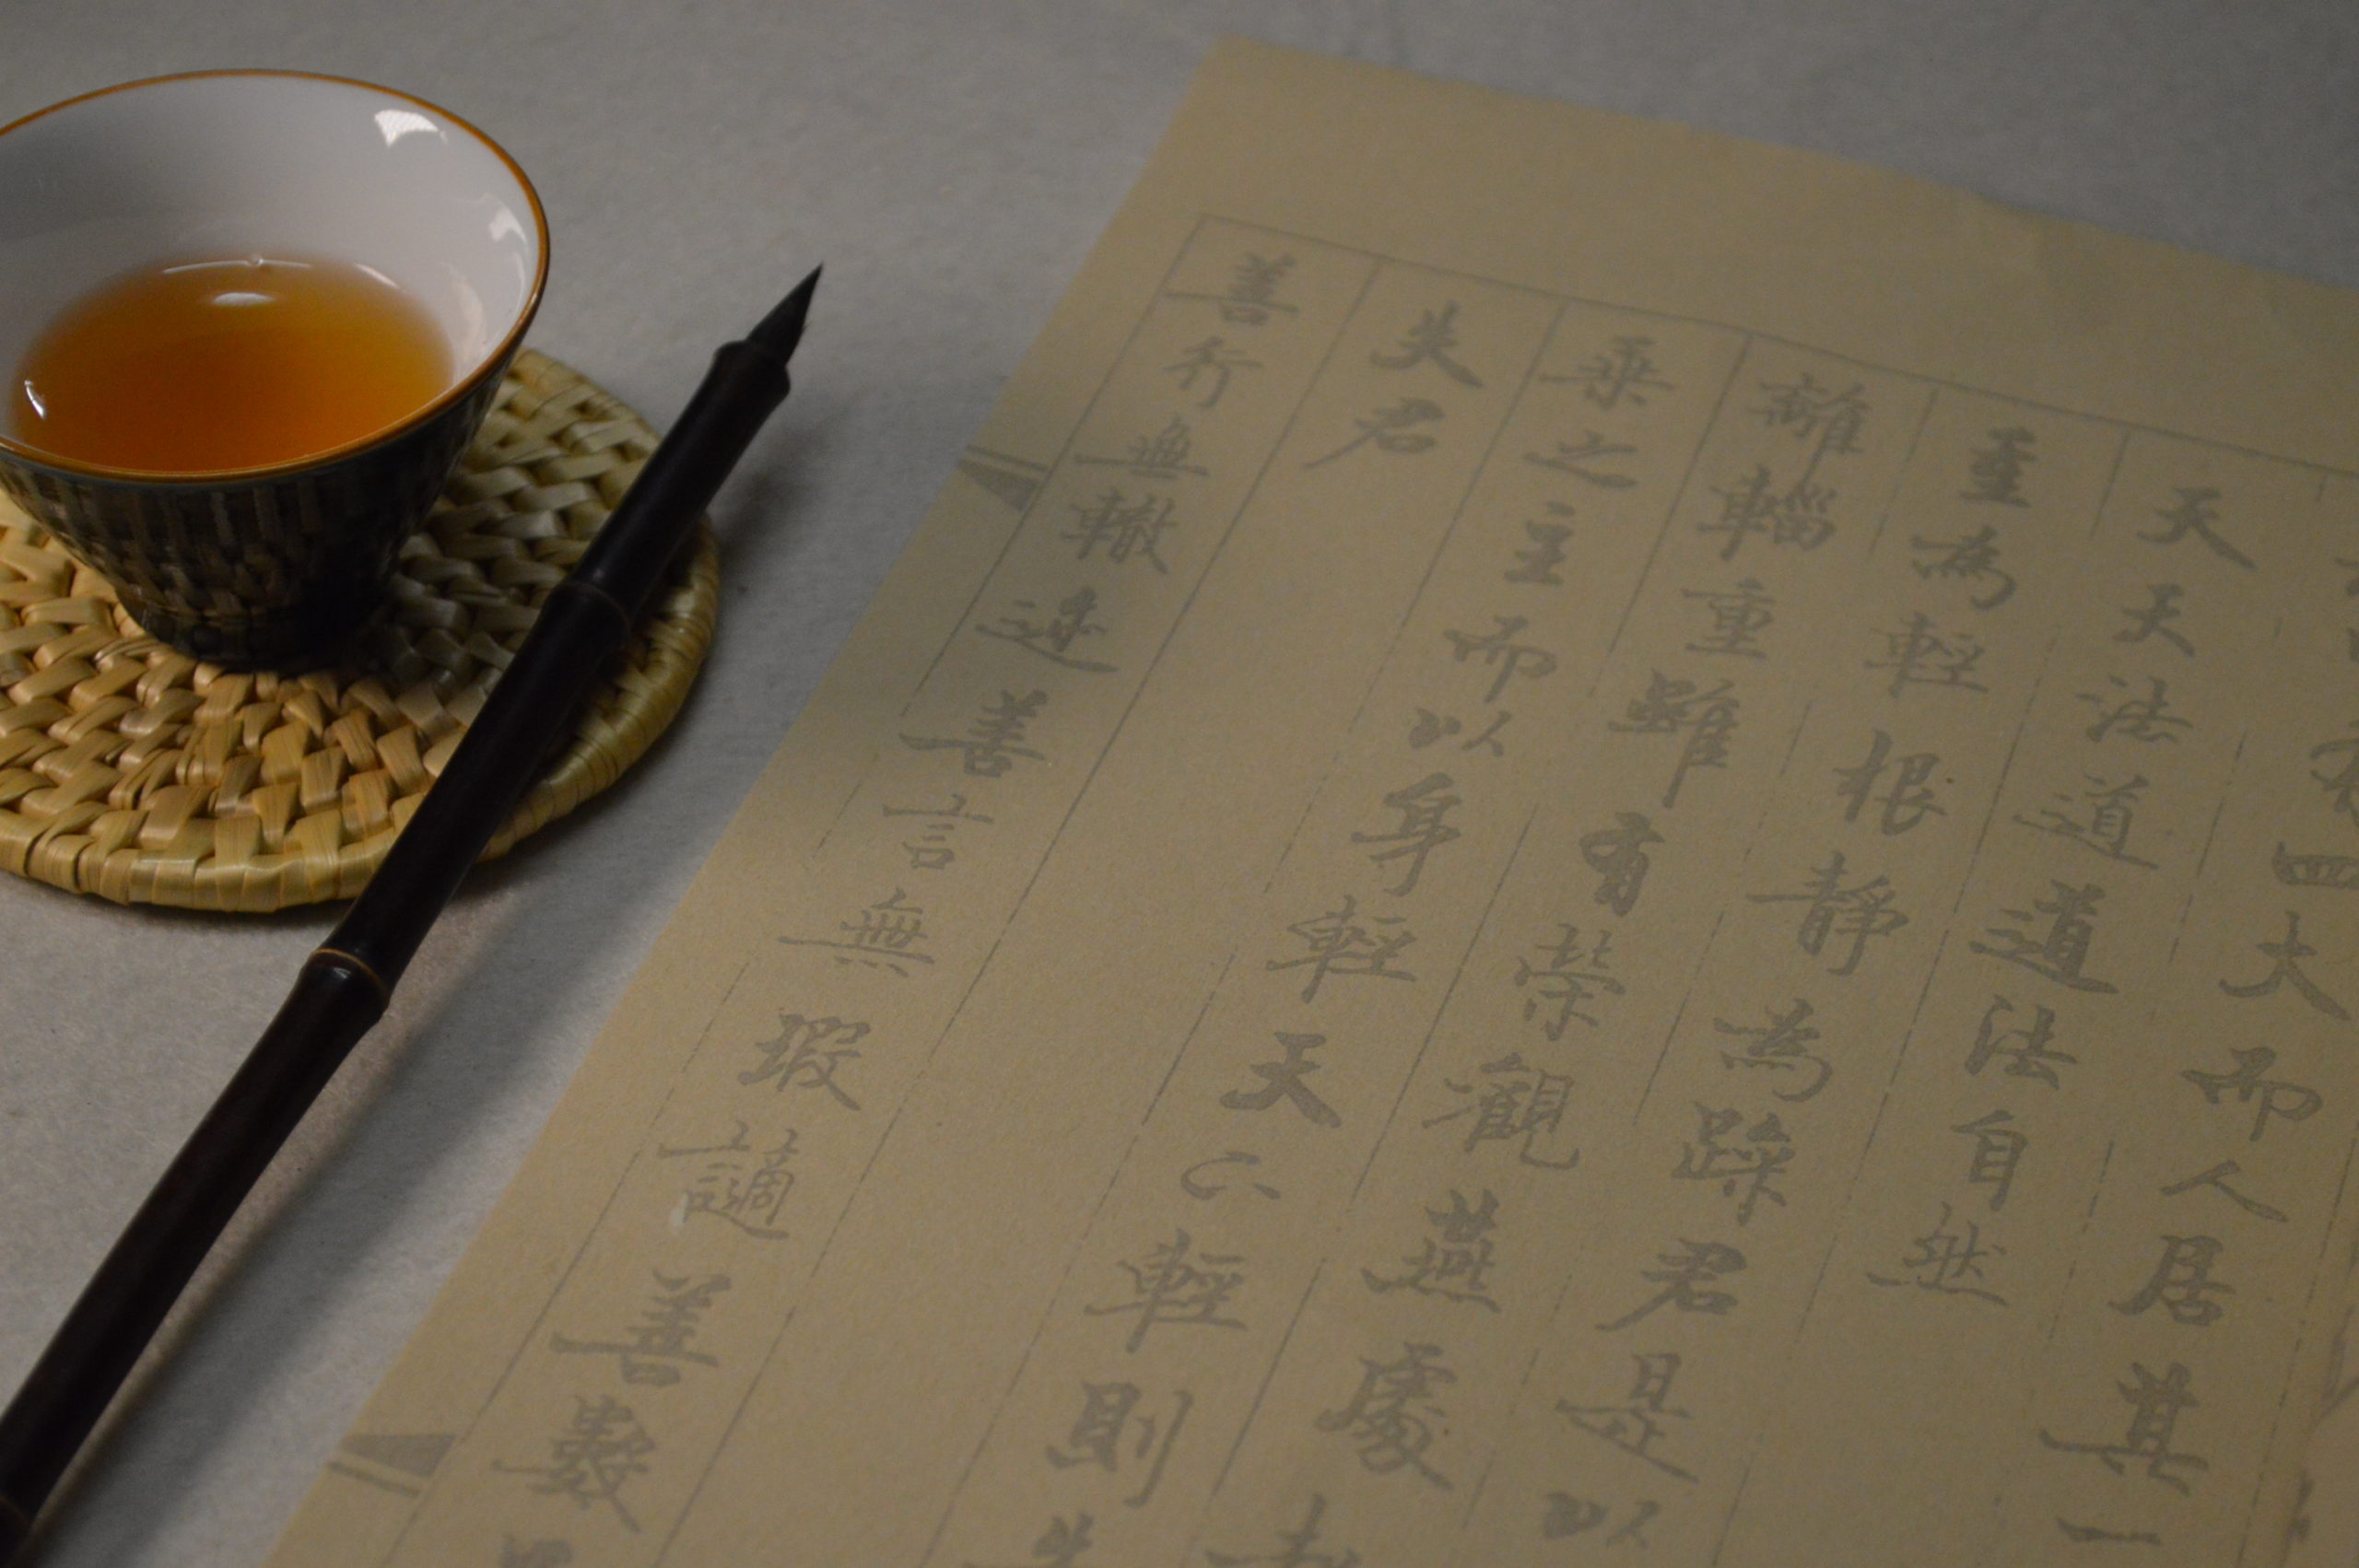 四大而人居其一
天天法道道法自然
重為輕根靜為躁君是以
離輜重雖有榮觀燕處
乘之主而以身輕天下輕則失
失君
善行無轍迹善言無瑕讁善數